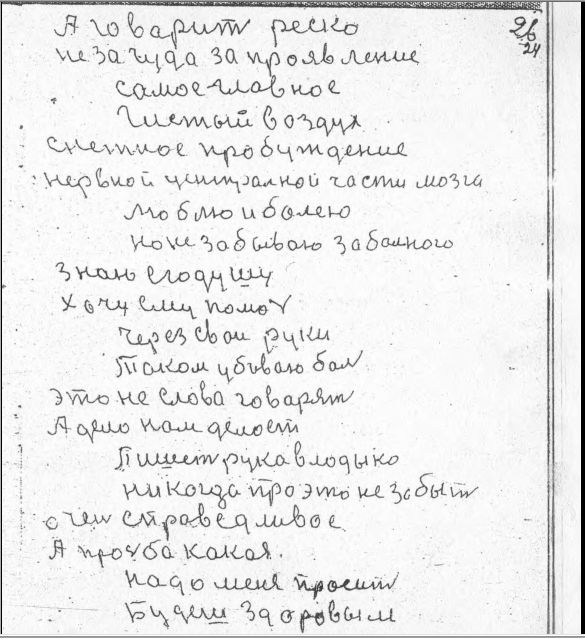 А говарит реско
26
24
не за чуда за проявление
самое главное
Чистый воздух
снетное пробуждение
нервной централной части мозга
Люблю и болею
но не забываю за болного
Знаю его душу
хочу ему помоч
через свои руки
Током убываю бал
это не слова говарят
А дело нам делост
Пишет рука владыко
никогда про это не забыт
очен справедливое
А прозба какая.
надо меня просит
Будеш здоровым